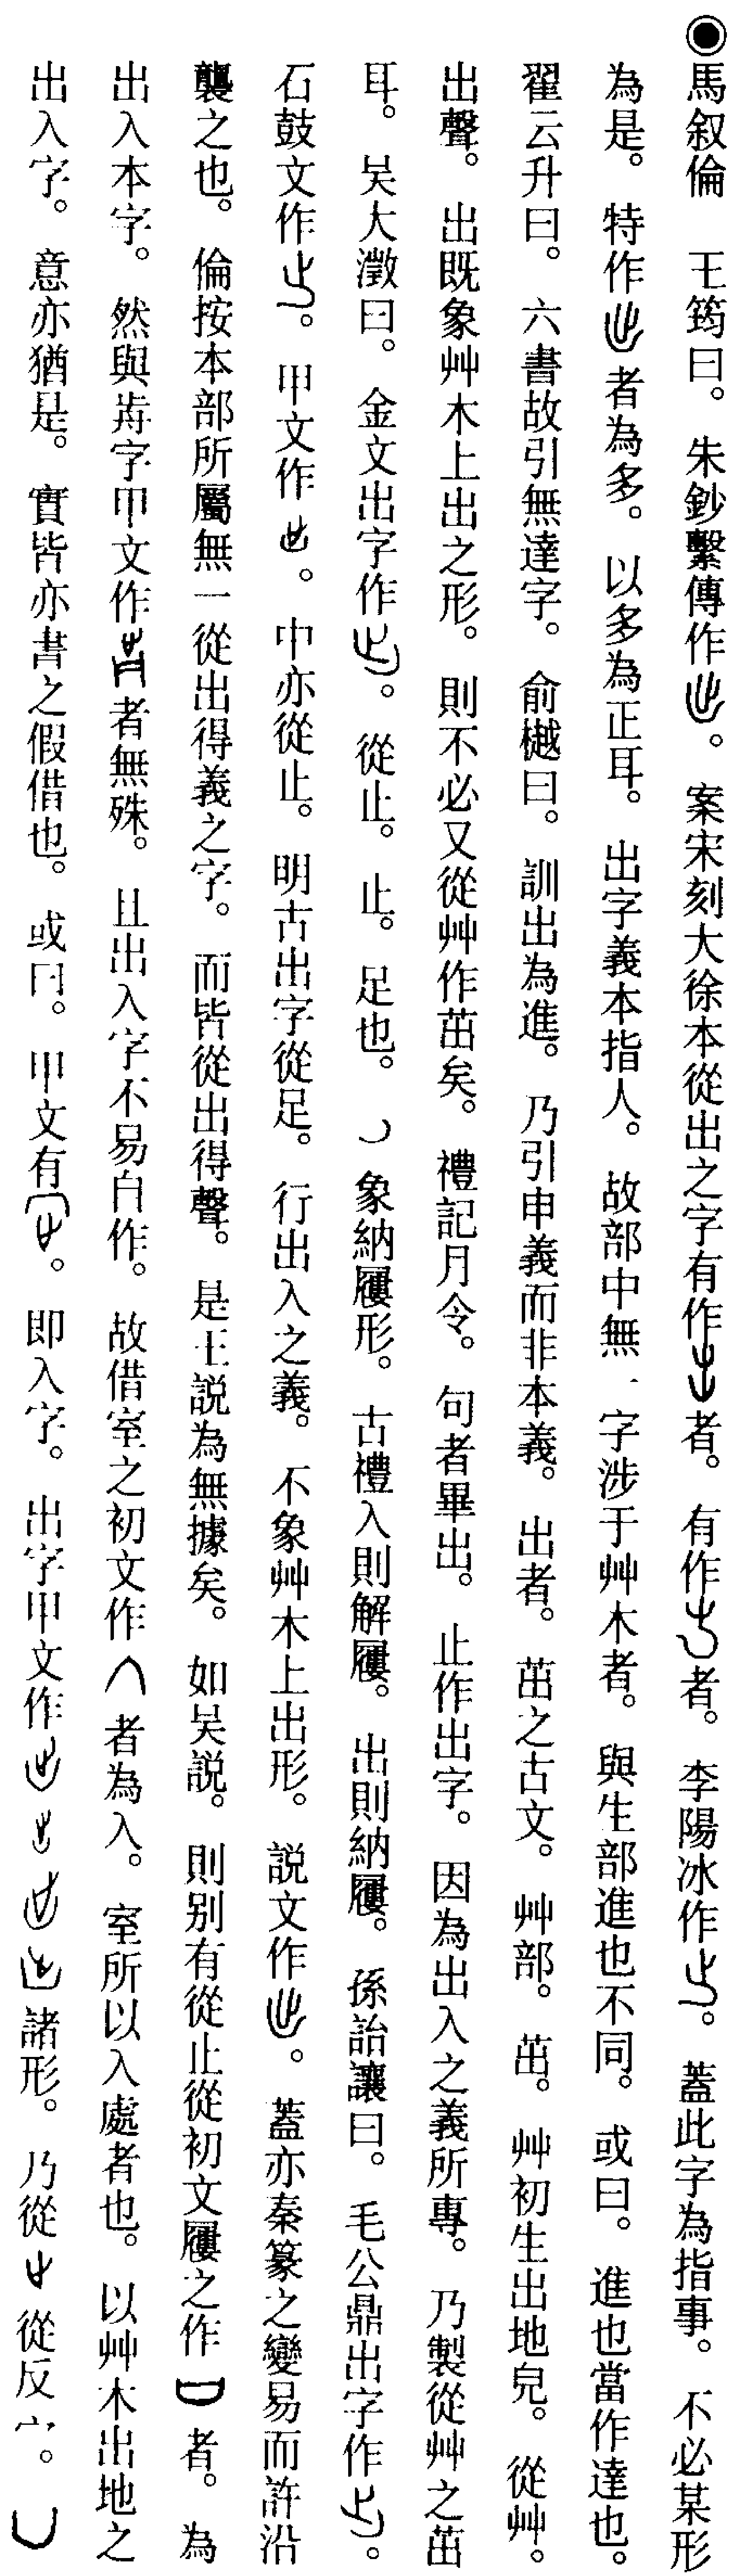 ◉馬叙倫　王筠曰。朱鈔繫傳作。案宋刻大徐本從出之字有作者。有作者。李陽冰作。蓋此字為指事。不必某形
為是。特作者為多。以多為正耳。出字義本指人。故部中無一字涉于艸木者。與生部進也不同。或曰。進也當作達也。
翟云升曰。六書故引無達字。俞樾曰。訓出為進。乃引申義而非本義。出者。茁之古文。艸部。茁。艸初生出地皃。從艸。
出聲。出既象艸木上出之形。則不必又從艸作茁矣。禮記月令。句者畢出。止作出字。因為出入之義所專。乃製從艸之茁
耳。吴大澂曰。金文出字作。從止。止。足也。象納屨形。古禮入則解屨。出則納屨。孫詒讓曰。毛公鼎出字作。
石鼓文作。甲文作。中亦從止。明古出字從足。行出入之義。不象艸木上出形。説文作。蓋亦秦篆之變易而許沿
襲之也。倫按本部所屬無一從出得義之字。而皆從出得聲。是王説為無據矣。如吴説。則别有從止從初文屨之作者。為
出入本字。然與歬字甲文作者無殊。且出入字不易自作。故借室之初文作者為入。室所以入處者也。以艸木出地之
出入字。意亦猶是。實皆亦書之假借也。或曰。甲文有。即入字。出字甲文作諸形。乃從從反宀。